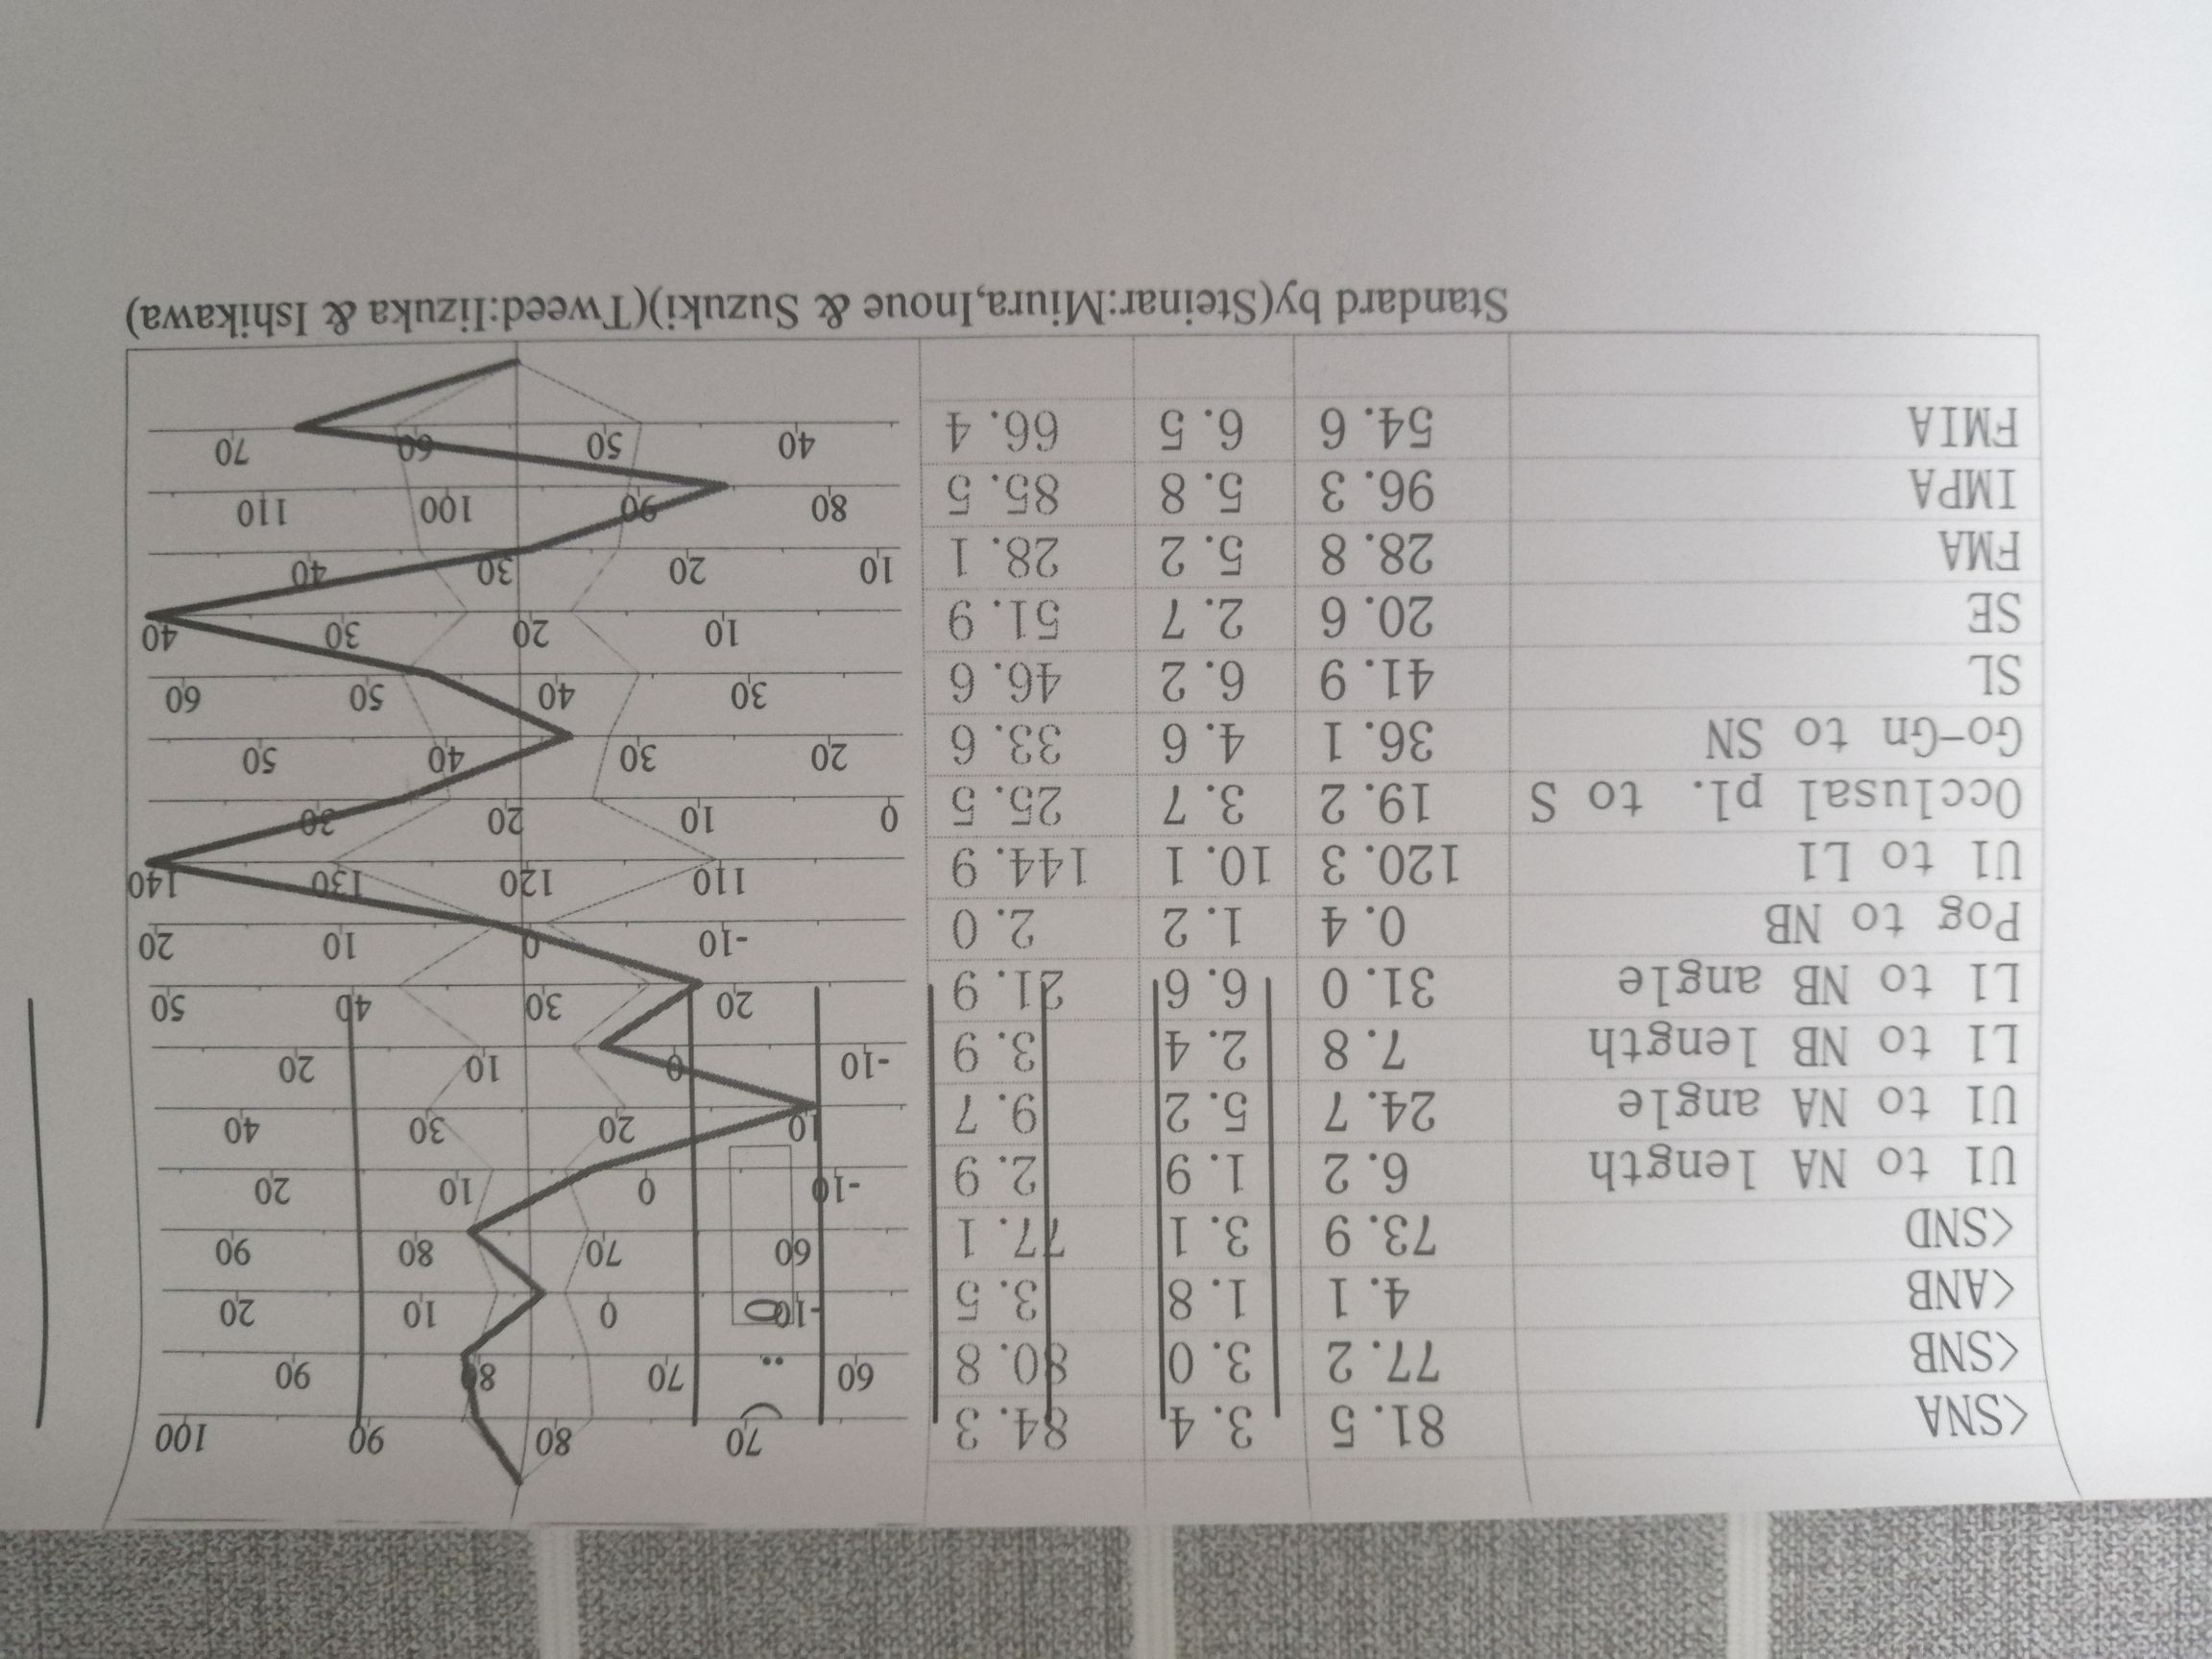 <SNA 81.5 3.4 84.3 70 80 90 100
<SNB 77.2 3.0 80.8 60 70 80 90
<ANB 4.1 1.8 3.5 -10 0 10 20
<SND 73.9 3.1 77.1 60 70 80 90
U1 to NA length 6.2 1.9 2.9 -10 0 10 20
U1 to NA angle 24.7 5.2 9.7 10 20 30 40
L1 to NB length 7.8 2.4 3.9 -10 0 10 20
L1 to NB angle 31.0 6.6 21.9 20 30 40 50
Pog to NB 0.4 1.2 2.0 -10 0 10 20
U1 to L1 120.3 10.1 144.9 110 120 130 140
Occlusal pl. to S 19.2 3.7 25.5 0 10 20 30
Go-Gn to SN 36.1 4.6 33.6 20 30 40 50
SL 41.9 6.2 46.6 30 40 50 60
SE 20.6 2.7 51.9 10 20 30 40
FMA 28.8 5.2 28.1 10 20 30 40
IMPA 96.3 5.8 85.5 80 90 100 110
FMIA 54.6 6.5 66.4 40 50 60 70
Standard by(Steinar:Miura,Inoue & Suzuki)(Tweed:Iizuka & Ishikawa)